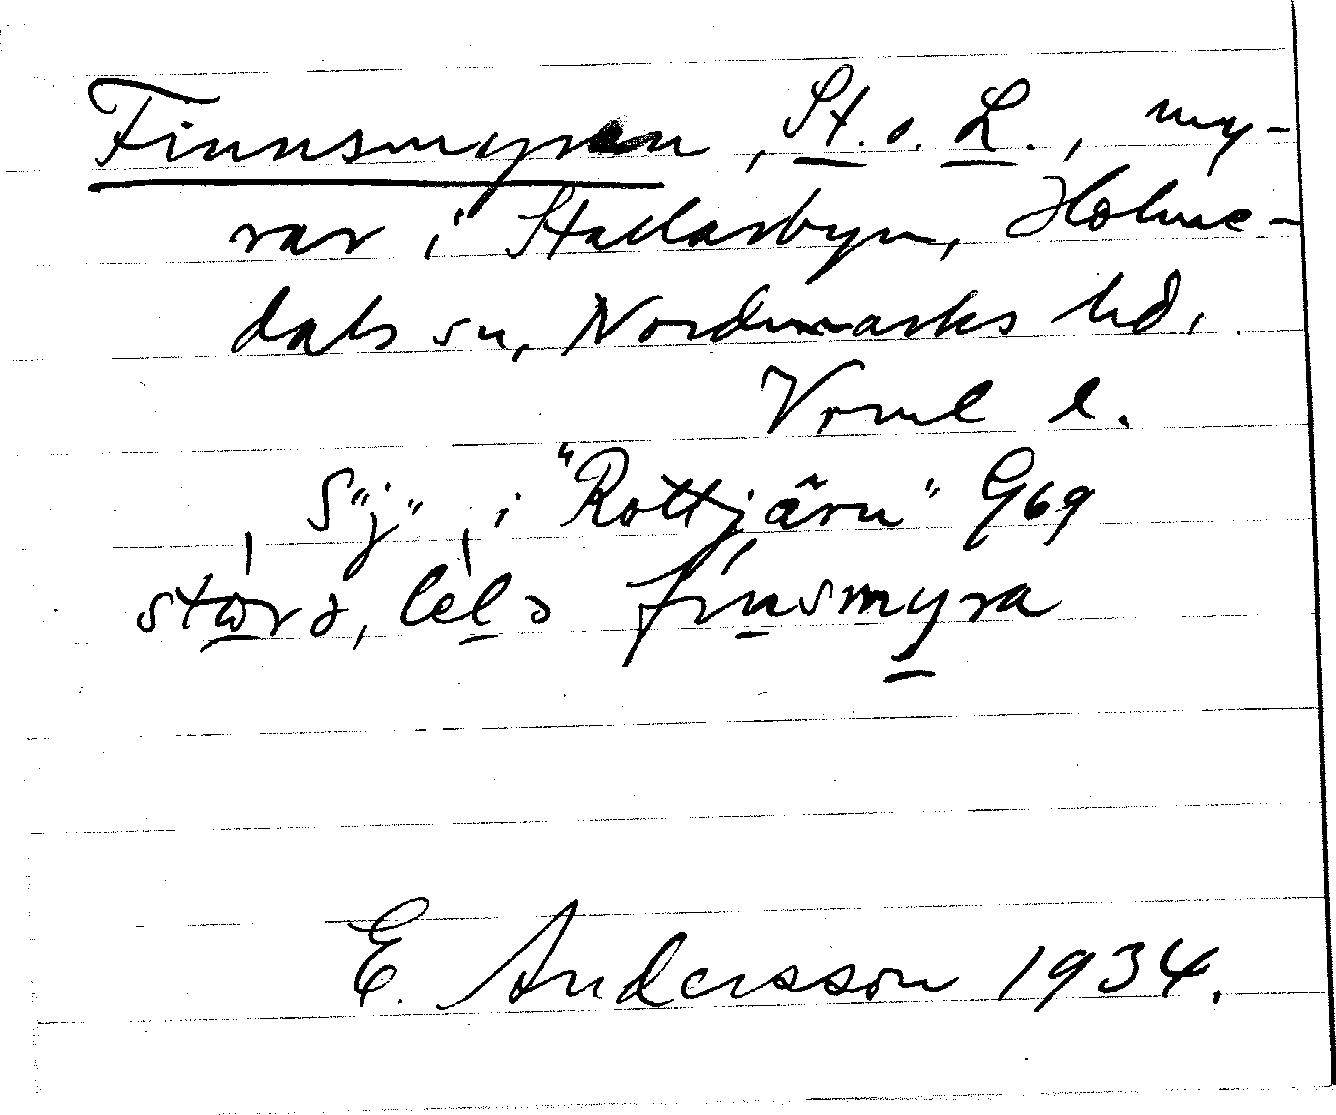 Finnsmyren, St. o. L., my-
rar i Stallarbyn, Holme-
dals sn, Nordmarks hd,
Vrml l.
S "j" i "Rottjärn" G69
störə, lelə finsmyra
E. Andersson 1934.